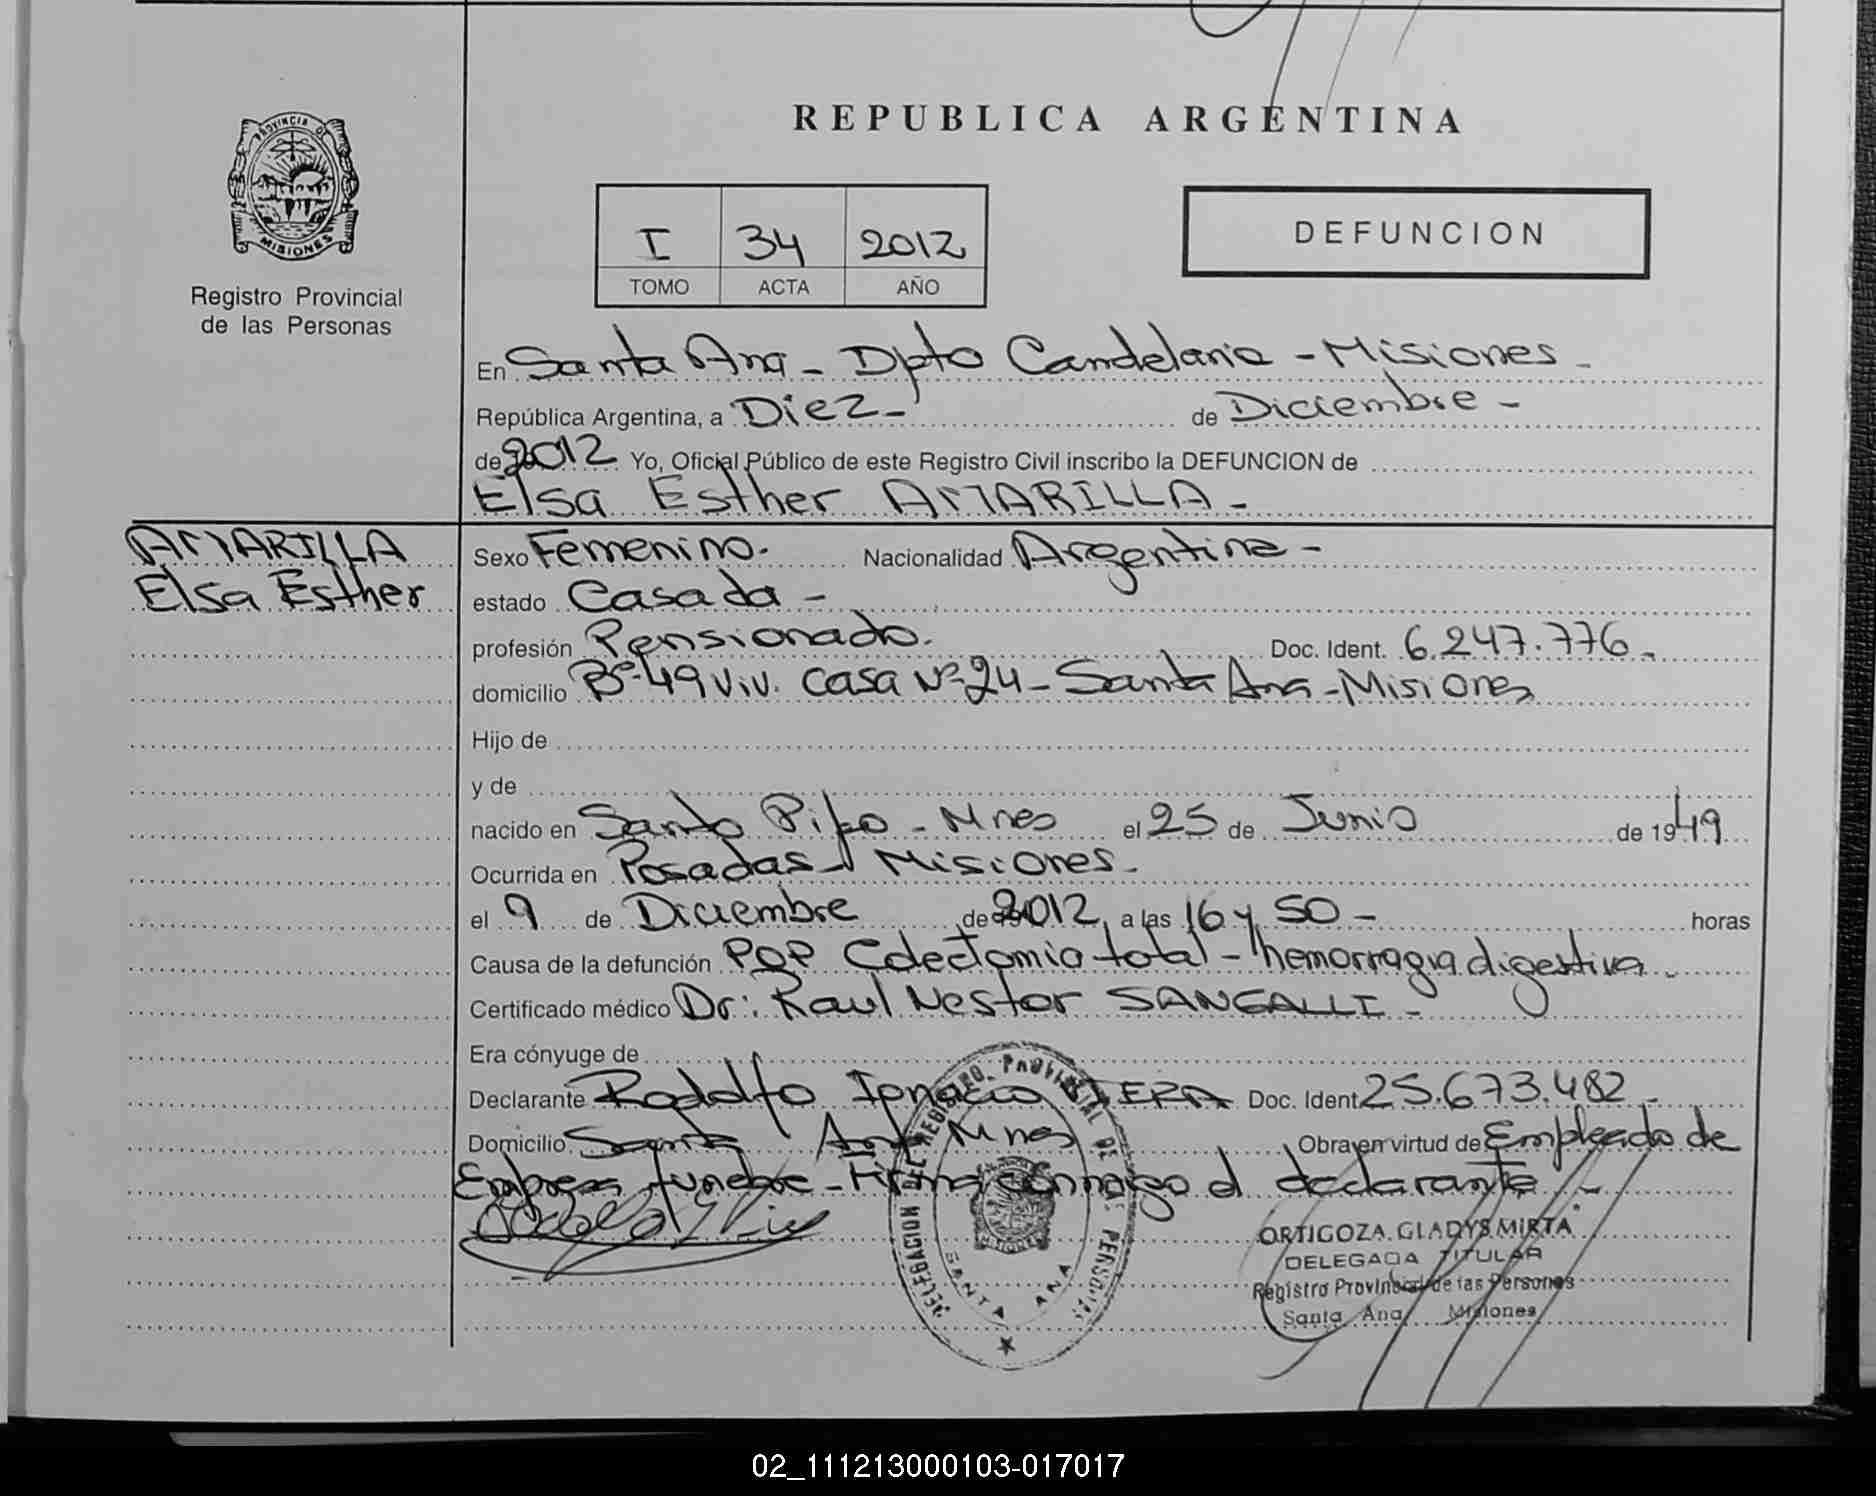 REPUBLICA ARGENTINA
PROVINCIA DE
MISIONES
Registro Provincial
de las Personas
I 34 2012
TOMO ACTA AÑO
DEFUNCION
En Santa Ana - Dpto Candelaria - Misiones -
República Argentina, a Diez - de Diciembre -
de 2012 Yo, Oficial Público de este Registro Civil inscribo la DEFUNCION de
Elsa Esther AMARILLA -
AMARILLA
Elsa Esther
Sexo Femenino. Nacionalidad Argentina -
estado Casada -
profesión Pensionado. Doc. Ident. 6.247.776 -
domicilio Bº 49 viv. casa Nº 24 - Santa Ana - Misiones
Hijo de
y de
nacido en Santo Pipo - Mnes el 25 de Junio de 1949
Ocurrida en Posadas - Misiones -
el 9 de Diciembre de 2012 a las 16 y 50 - horas
Causa de la defunción POP Colectomia total - hemorragia digestiva -
Certificado médico Dr: Raul Nestor SANGALLI -
Era cónyuge de
Declarante Rodolfo Ignacio VIERA Doc. Ident 25.673.482 -
Domicilio Santa Ana Mnes Obra en virtud de Empleado de
Empresa funebre - Firma conmigo el declarante -
DELEGACION DEL REGISTRO PROVINCIAL DE LAS PERSONAS
MISIONES
SANTA ANA
ORTIGOZA GLADYS MIRTA
DELEGADA TITULAR
Registro Provincial de las Personas
Santa Ana Misiones
02_111213000103-017017